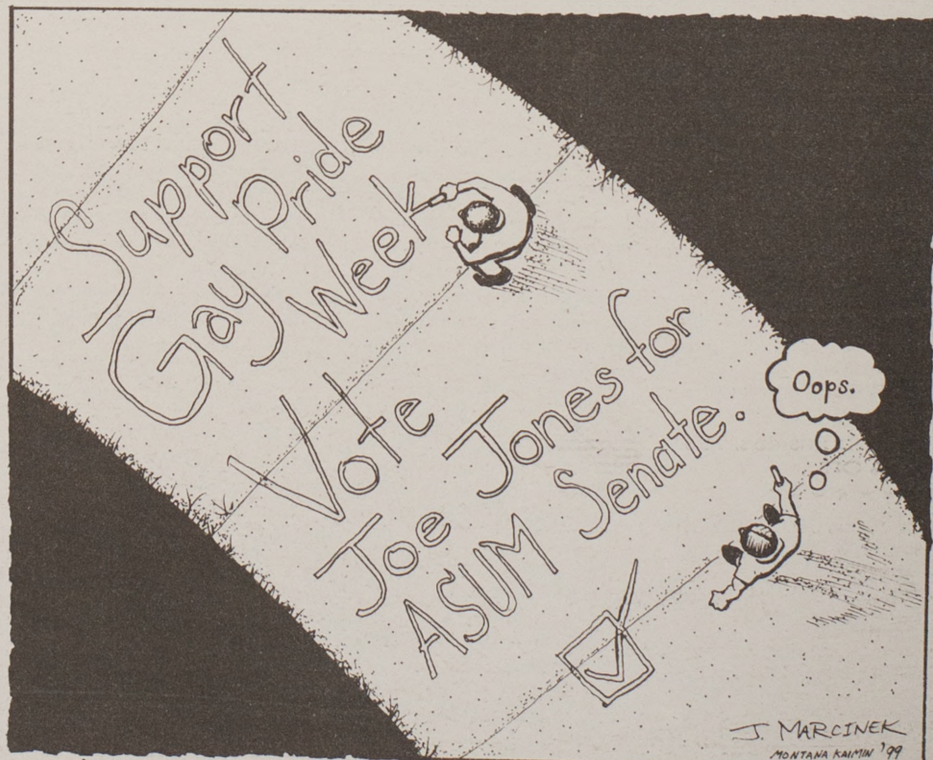 Support
Gay Pride
Week
Vote
Joe Jones for
ASUM Senate.
Oops.
J. MARCINEK
MONTANA KAIMIN '99